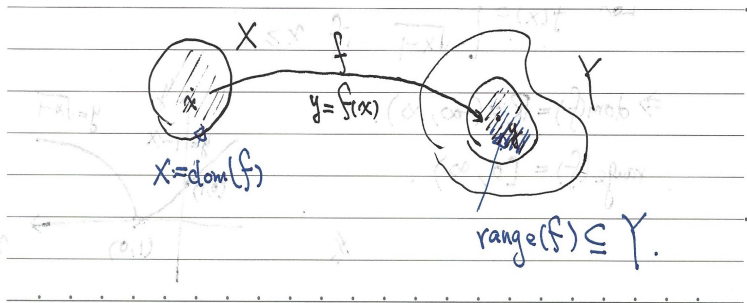 X
f
Y
x
y = f(x)
y
X = dom(f)
range(f) ⊆ Y.